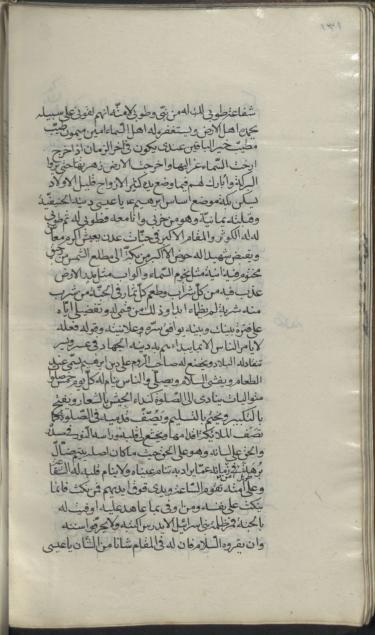 ١٣١
شفاعة طوبى لك له من نبى وطوبى لامته انهم لقونى على سبيله
يحمده اهل الارض ويستغفر له اهل السماء امين ميمون طيب
مطيب خير الباقين عندى يكون فى اخر الزمان اذا خرج
ارخت السماء عزاليها واخرجت الارض زهرتها حتى يروا
البركة وابارك لهم فيما وضع يده كثير الازواج قليل الاولاد
يسكن بكة موضع اساس ابرهيم يا عيسى دينه الحنيفية
وقبلته يمانية وهو من حزبى وانا معه فطوبى له ثم طوبى
له له الكوثر والمقام الاكبر فى جنات عدن يعيش اكرم معاش
ويقبض شهيدا له حوض الاكبر من بكة الى مطلع الشمس من رحيق
مختوم فيه انية مثل نجوم السماء واكواب مثل مدر الارض
عذب فيه من كل شراب وطعم كل ثمار فى الجنة من شرب
منه شربة لم يظماء ابدا وذلك من قسمى له وتفضيلى اياه
على فترة بينك وبينه يوافق سره علانيته وقوله فعله
لا يامر الناس الا بما يبداهم به دينه الجهاد فى عسر ويسر
تنقاد له البلاد ويخضع له صاحب الروم على دين ابرهيم يسمى عند
الطعام ويفشى السلام ويصلى والناس نيام له كل يوم خمس صلوات
متواليات ينادى الى الصلوة كنداء الجيش بالشعار ويفتتح
بالتكبير ويختم بالتسليم ويصف قدميه فى الصلوة كما
تصف الملائكة اقدامها ويخشع لى قلبه وراسه النور فى صدره
والحق على لسانه وهو على الحق حيث ما كان اصله يتيم ضال
برهة من زمانه عما يراد به تنام عيناه ولا ينام قلبه له الشفاعة
وعلى امته تقوم الساعة ويدى فوق ايديهم فمن نكث فانما
ينكث على نفسه ومن اوفى بما عاهد عليه اوفيت له
بالجنة فمر ظلمة بنى اسرائيل الا يدرسوا كتبه ولا يحرفوا سنته
وان يقروه السلام فان له فى المقام شانا من الشان يا عيسى